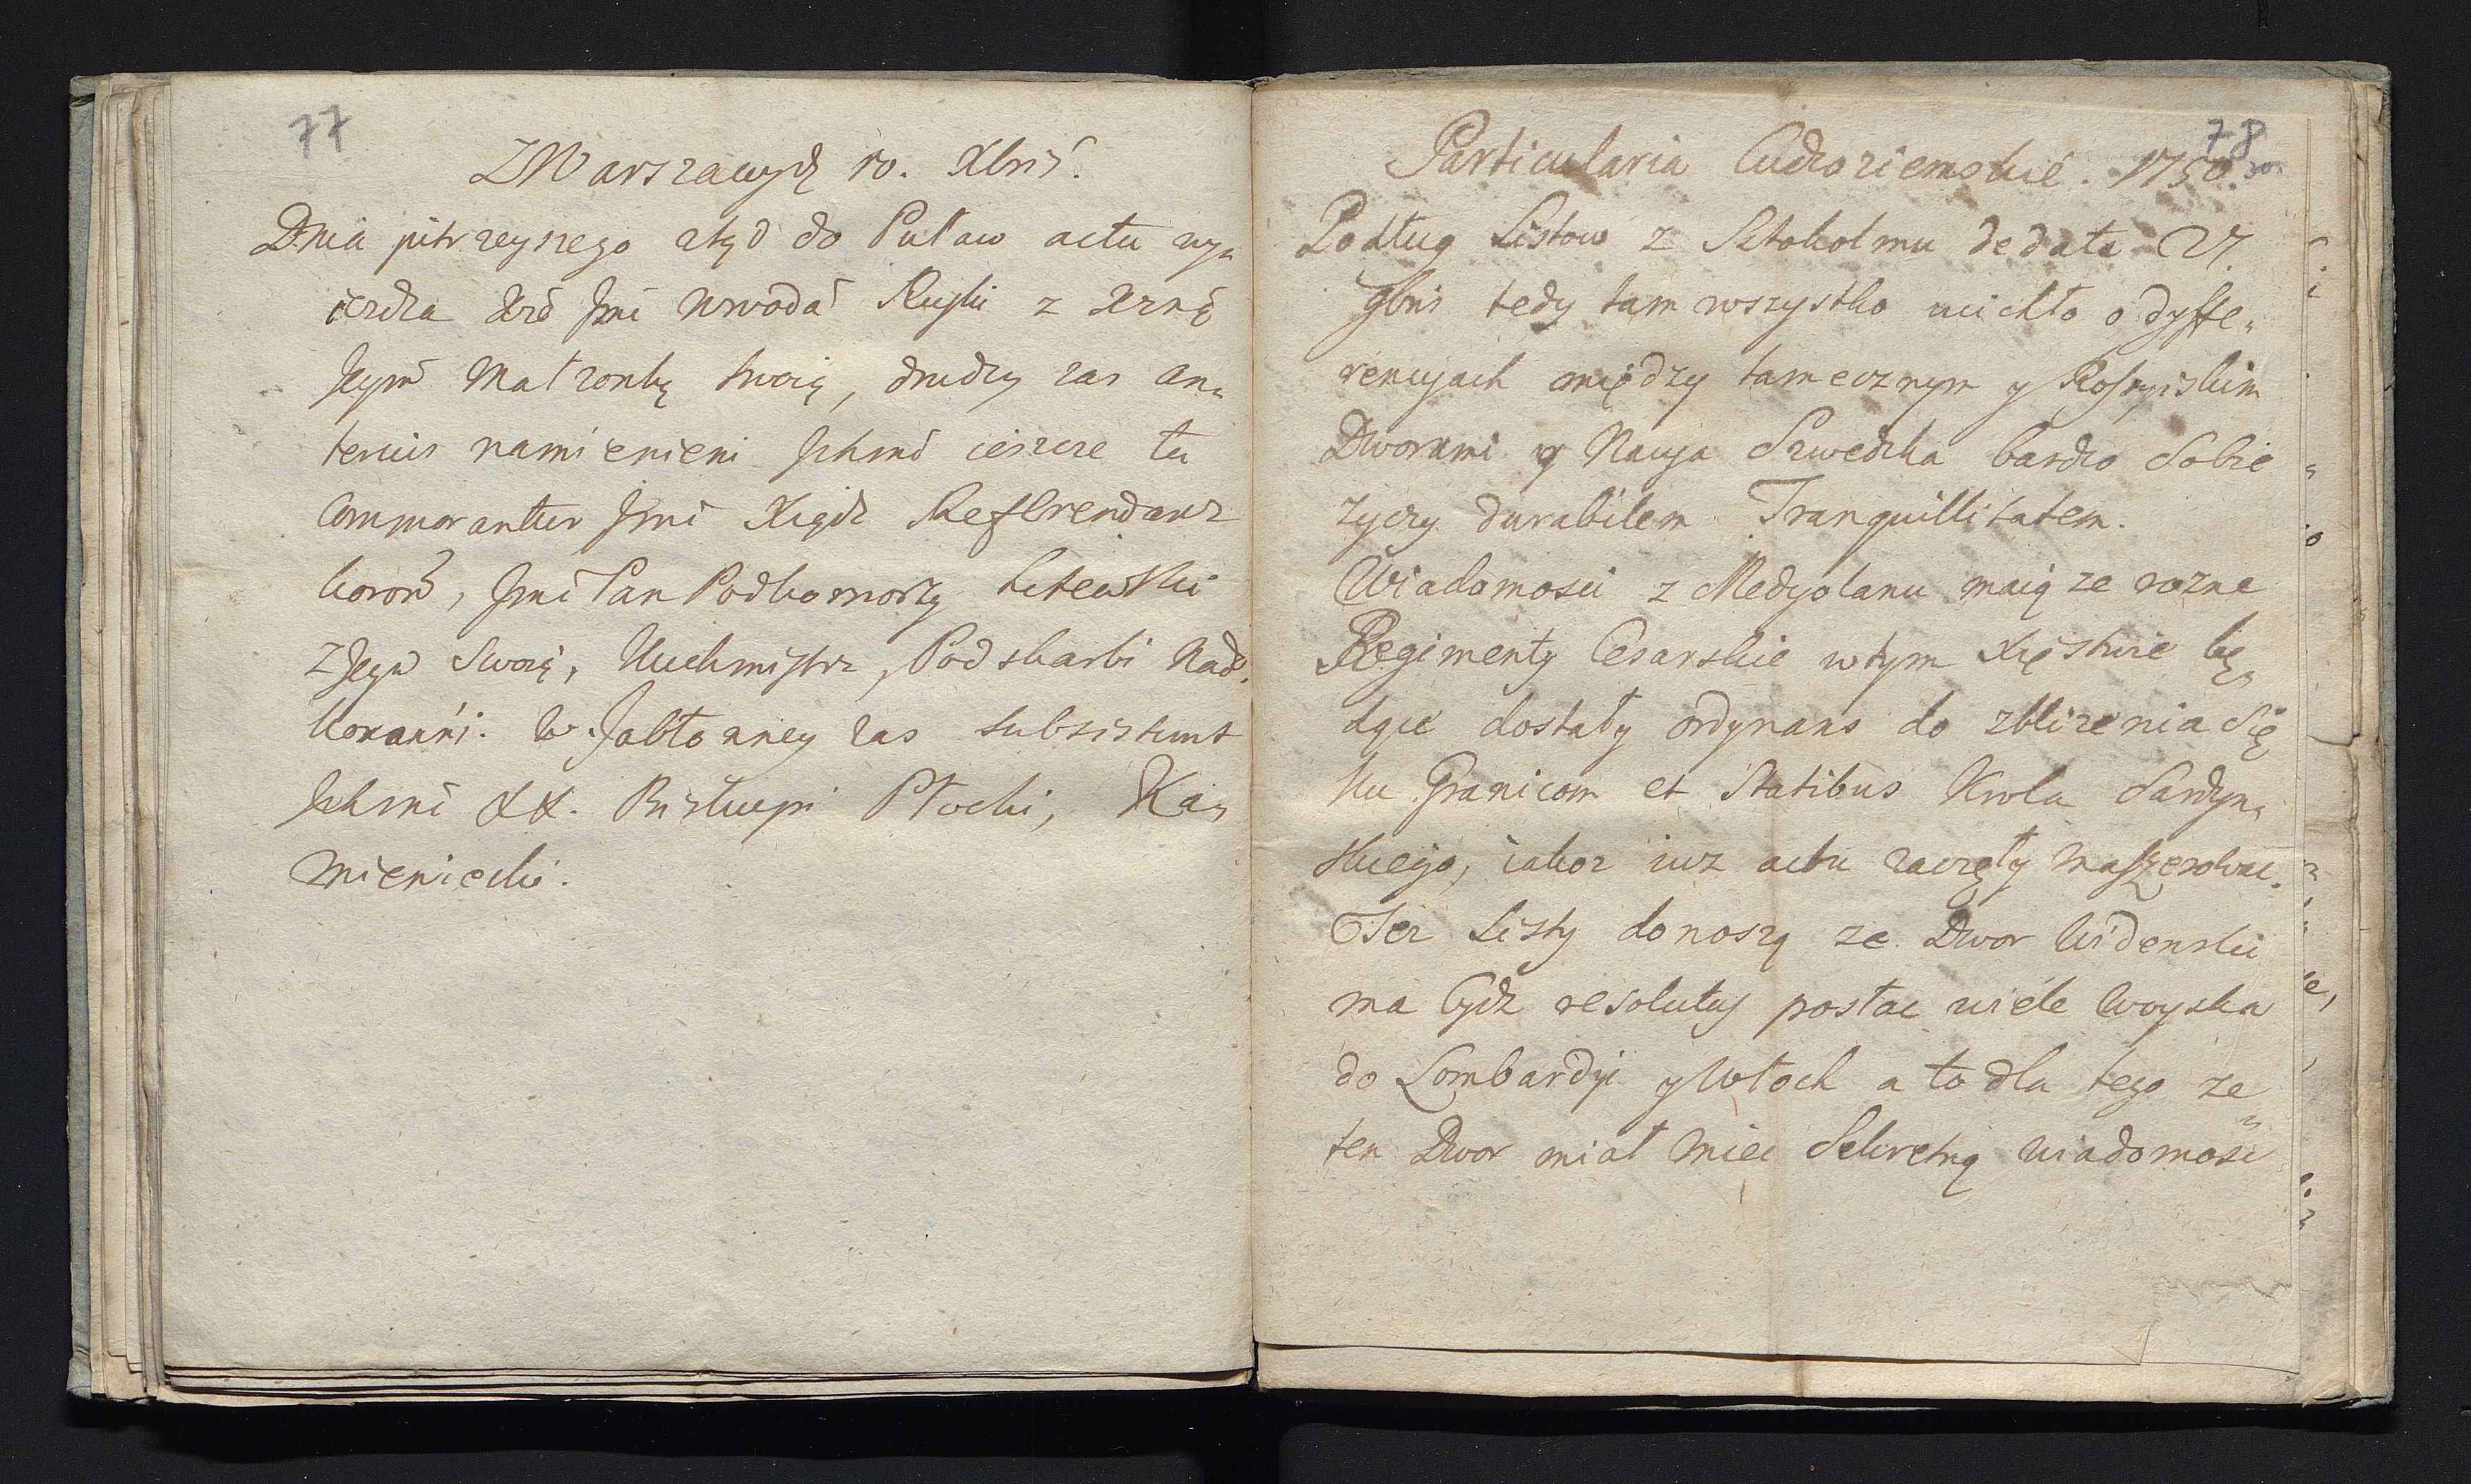 77
Z Warszawy d 10. Xbris.
Dnia jutrzeyszego ztąd do Puław actu wy„
ieżdza Xże Jmć Wwoda Ruski z Xżną
Jeymć Małzonką swoią, drudzy zas an„
terius namienieni Ichmć ieszcze tu
commorantur Jmć Xiądz Refferendarz
koron, Jmć Pan Podkomorzy Litewski
z Jeym Swoią, Kuchmistrz, Podskarbi Nad.
Koronni. w Jabłonney zas subsistunt
Ichmć XX. Biskupi Płocki, Ka„
mieniecki.
78
Particularia Cudzoziemskie. 1750.
Podług Listow z Sztokolmu de data 27.
9bris tedy tam wszystko ucichło o dyffe„
rencyach między tamecznym y Rossyiskim
Dworami y Nacya Szwedzka bardzo Sobie
zyczy durabilem Tranquillitatem.
Wiadomosci z Medyolanu maią ze rozne
Regimenty Cesarskie w tym Xięstwie bę„
dące dostały ordynans do zblizenia Się
ku Granicom et Statibus Krola Sardyn„
skiego, iakoz iuz actu zaczęły maszerowac.
Tez Listy donoszą ze Dwor Widenski
ma bydz resoluty posłac wiele Woyska
do Lombardyi y Włoch a to dla tego ze
ten Dwor miał miec Sekretną wiadomosc